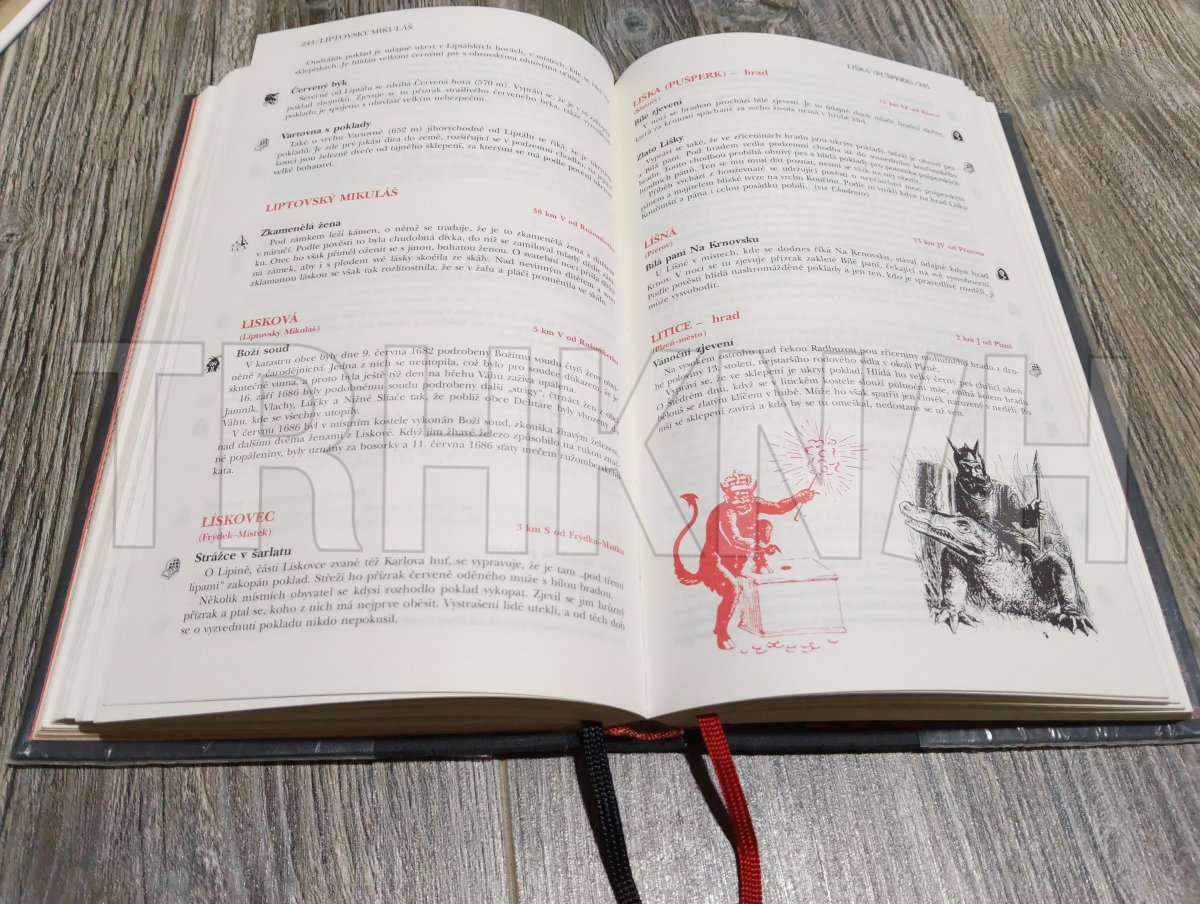 244/LIPTOVSKÝ MIKULÁŠ
Ondrášův poklad je údajně ukryt v Liptálských horách, v místech, kde se
sklepiskách. Je hlídán velkými černými psy s obrovskýma ohnivýma očima.
Červený býk
Severně od Liptálu se zdvihá Červená hora (570 m). Vypráví se, že je v ní zakopán
poklad zbojníků. Zjevuje se tu přízrak strašlivého červeného býka, takže vyzvednutí
pokladu je spojeno s obzvlášť velkým nebezpečím.
Vartovna s poklady
Také o vrchu Vartovně (652 m) jihovýchodně od Liptálu se říká, že je ukrývá
pokladů. Je zde prý jakási díra do země, rozšiřující se v podzemní chodbu, na jejímž
konci jsou železné dveře od tajného sklepení, za kterými se má podle pověstí ukrývat
velké bohatství.
LIPTOVSKÝ MIKULÁŠ
38 km V od Ružomberku
Zkamenělá žena
Pod zámkem leží kámen, o němž se traduje, že je to zkamenělá žena s dítětem
v náručí. Podle pověsti to byla chudobná dívka, do níž se zamiloval mladý dědic zámku.
Otec ho však přiměl oženit se s jinou, bohatou ženou. O svatební noci přišla dívka
na zámek, aby i s plodem své lásky skočila ze skály. Nad nevinným dítětem a svou
zklamanou láskou se však tak rozlítostnila, že se v žalu a pláči proměnila ve skálu.
LISKOVÁ
(Liptovský Mikuláš)
5 km V od Ružomberku
Boží soud
V katastru obce byly dne 9. června 1682 podrobeny Božímu soudu čtyři ženy obvi-
něné z čarodějnictví. Jedna z nich se neutopila, což bylo pro soudce důkazem, že je
skutečně vinna, a proto byla ještě týž den na břehu Váhu zaživa upálena.
16. září 1686 byly podobnému soudu podrobeny další „strigy“, čtrnáct žen z obcí
Jamník, Vlachy, Lúčky a Nižné Sliače tak, že poblíž obce Dehtáre byly vhozeny do
Váhu, kde se všechny utopily.
V červnu 1686 byl v místním kostele vykonán Boží soud, zkouška žhavým železem,
nad dalšími dvěma ženami z Liskové. Když jim žhavé železo způsobilo na rukou znač-
né popáleniny, byly uznány za bosorky a 11. června 1686 sťaty mečem ružomberského
kata.
LÍSKOVEC
(Frýdek–Místek)
3 km S od Frýdku–Místku
Strážce v šarlatu
O Lipině, části Lískovce zvané též Karlova huť, se vypravuje, že je tam „pod třemi
lipami“ zakopán poklad. Střeží ho přízrak červeně oděného muže s bílou bradou.
Několik místních obyvatel se kdysi rozhodlo poklad vykopat. Zjevil se jim hrůzný
přízrak a ptal se, koho z nich má nejprve oběsit. Vystrašení lidé utekli, a od těch dob
se o vyzvednutí pokladu nikdo nepokusil.
LIŠKA (PUŠPERK)/245
LIŠKA (PUŠPERK) – hrad
(Klatovy)
13 km SV od Klatov
Bílé zjevení
V noci se hradem prochází bílé zjevení. Je to údajně duch mladé hradní dečery,
která za krutosti spáchané za svého života nemá v hrobě klid.
Zlato Lišky
Vypráví se také, že ve zříceninách hradu jsou ukryty poklady. Střeží je ohnivý pes
a Bílá paní. Pod hradem vedla podzemní chodba až do sousedního
hradu. Touto chodbou probíhá ohnivý pes a hlídá poklady pro potomka pušperských
hradních pánů. Ten se mu musí dát poznat, nesmí se však na něj obořit.
Příběh vychází z houževnatě se udržující pověsti o nepřátelství mezi pušperským
pánem a majitelem blízké tvrze na vrchu Kouřimi. Podle ní vnikl kdysi na hrad Lišku
Kouřimští a pána i celou posádku pobili. (viz Chudenice)
LIŠNÁ
(Přerov)
13 km JV od Přerova
Bílá paní Na Krnovsku
U Lišné v místech, kde se dodnes říká Na Krnovsku, stával údajně kdysi hrad
Krnov. V noci se tu zjevuje přízrak zakleté Bílé paní, čekající na své vysvobození.
Podle pověsti hlídá nashromážděné poklady a jen ten, kdo je spravedlivě rozdělí, ji
může vysvobodit.
LITICE – hrad
(Plzeň–město)
2 km J od Plzně
Vánoční zjevení
Na vysokém ostrohu nad řekou Radbuzou jsou zříceniny mohutného hradu z dru-
hé poloviny 13. století, nejstaršího rodového sídla v okolí Plzně.
Vypráví se, že ve sklepení je ukryt poklad. Hlídá ho velký černý pes chrlící oheň.
O Štědrém dnu, když se v litickém kostele slouží půlnoční mše, obíhá kolem hradu
bělouš se zlatým klíčem v hubě. Může ho však spatřit jen člověk narozený v neděli. Po
mši se sklepení zavírá a kdo by se tu omeškal, nedostane se už ven.
TRHKNIH